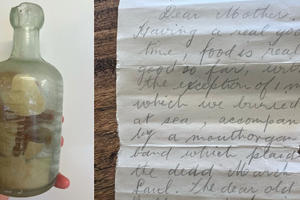 Dear Mother,
Having a real goo
time, food is real
good so far, with
the exception of 1 m
which we buried
at sea, accompan
by a mouthorgan
band which plaid
the dead March
Saul. The dear old